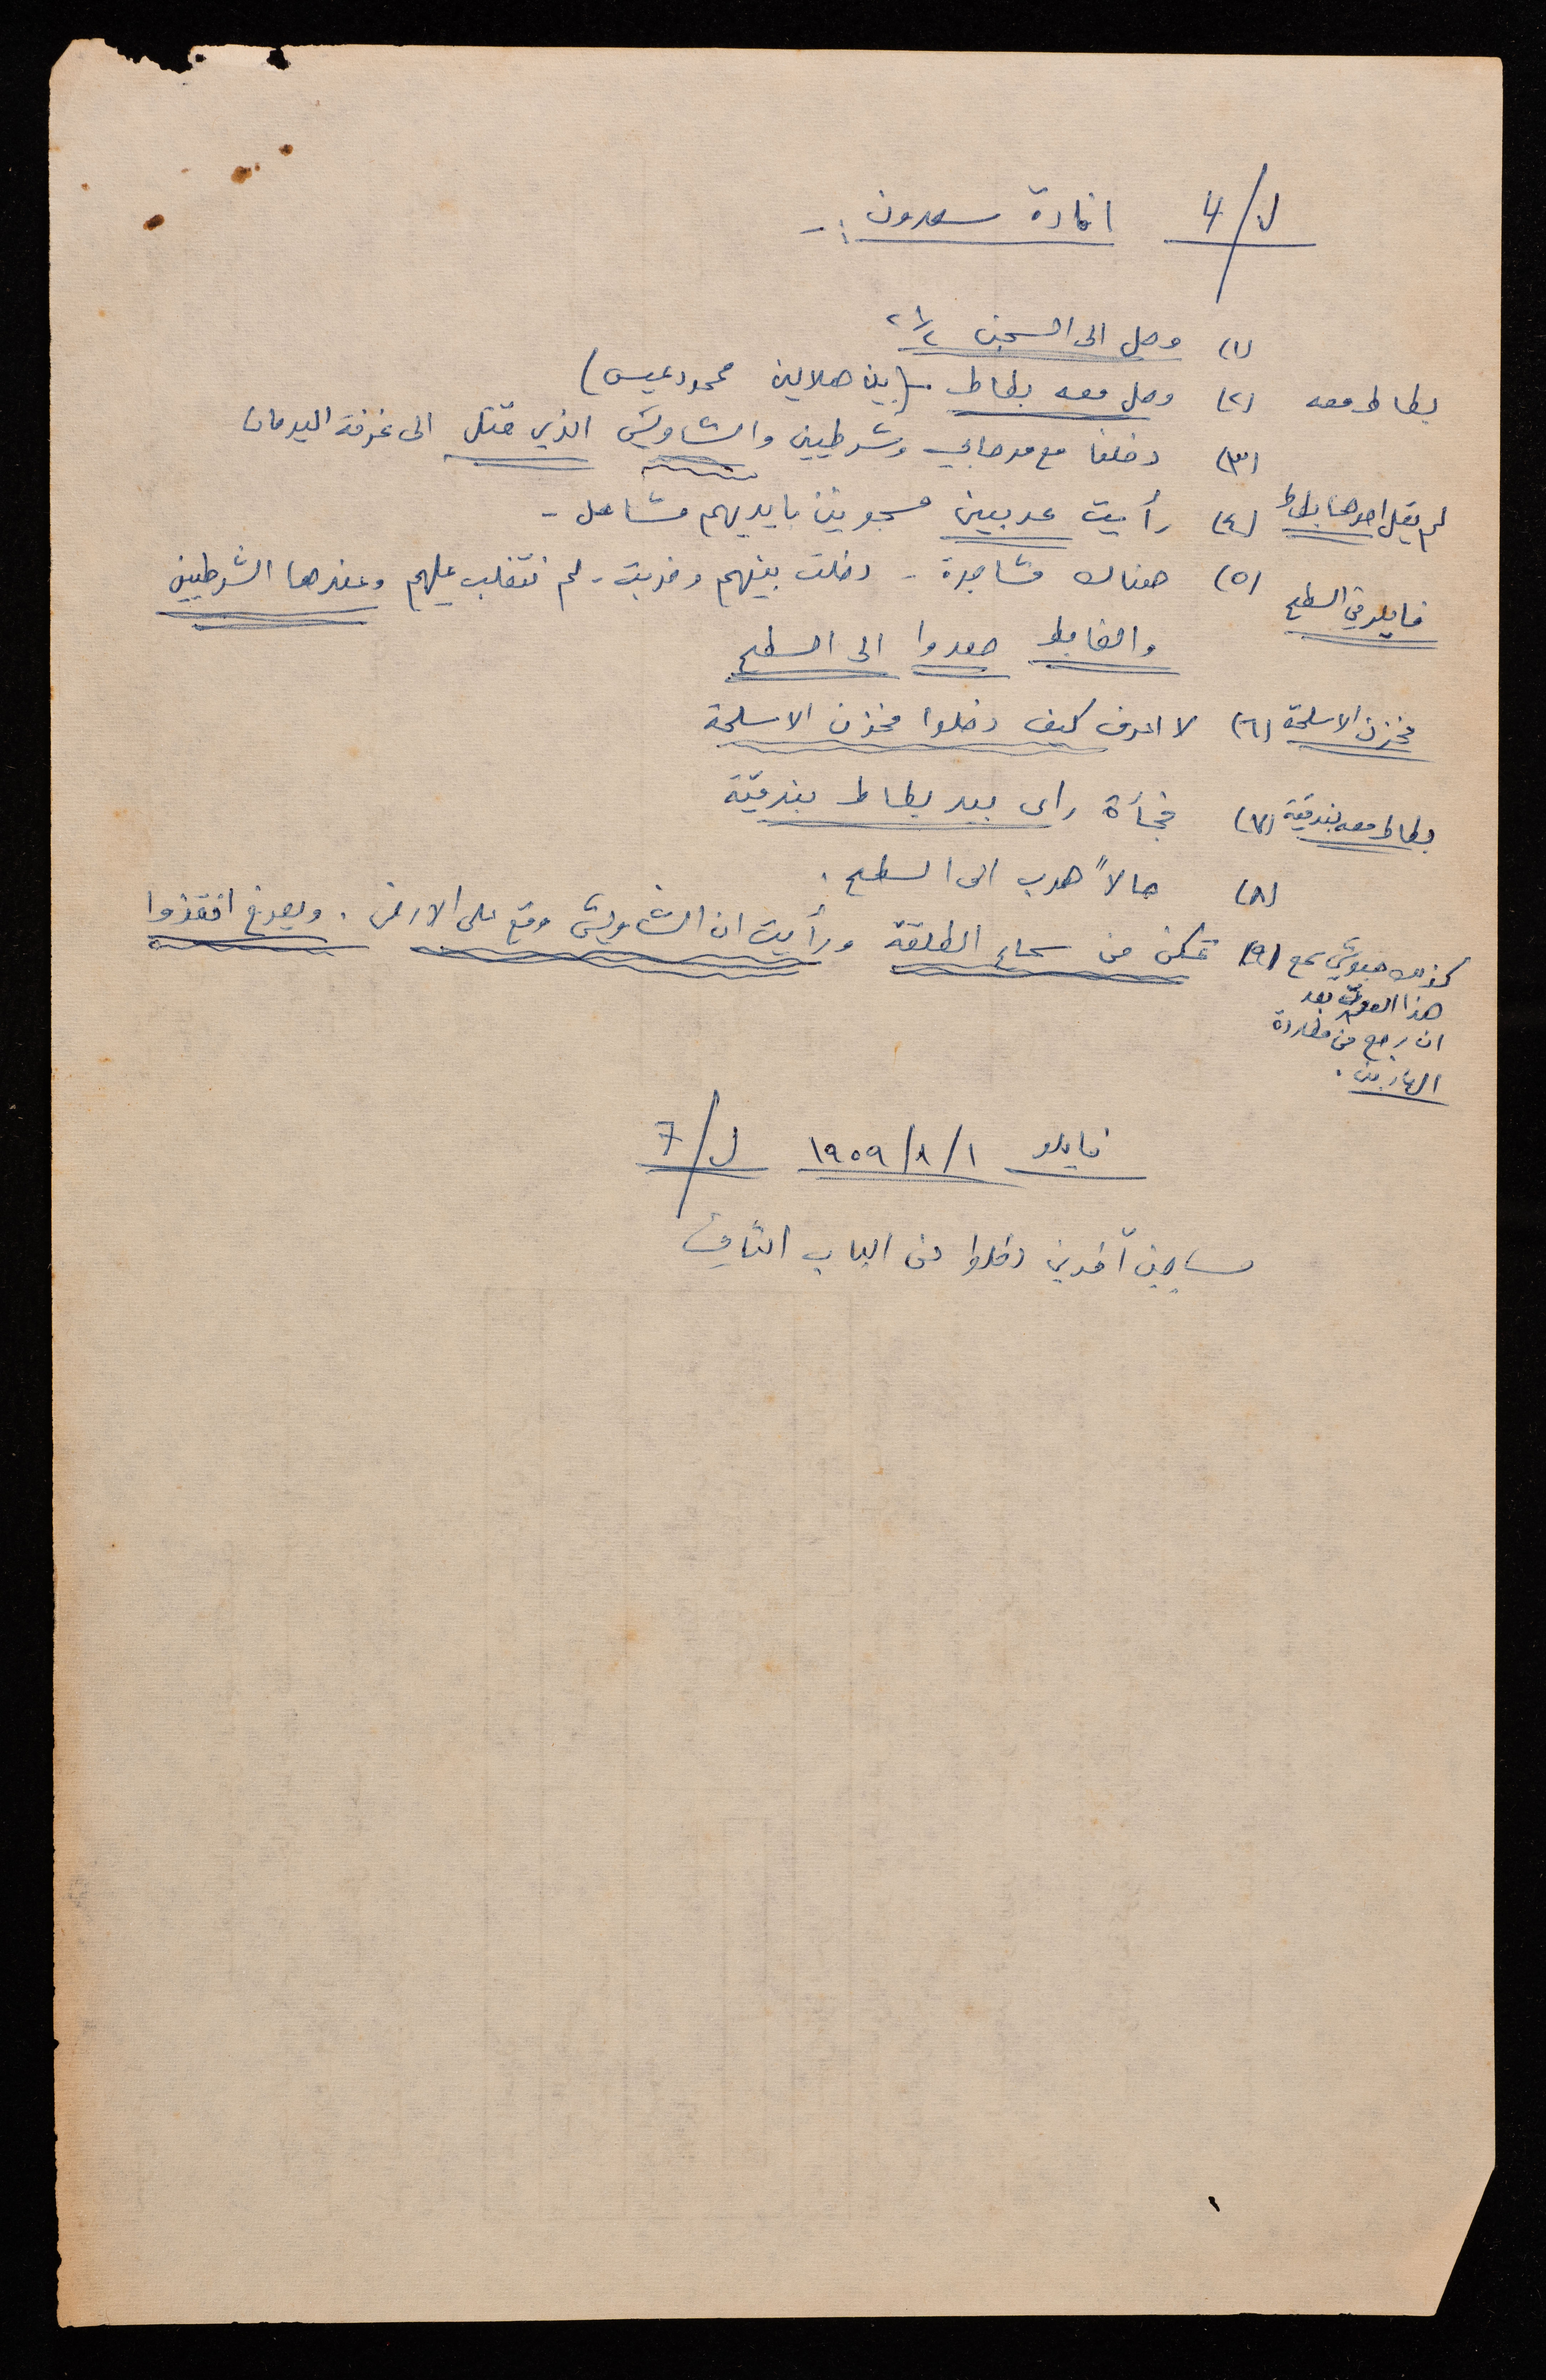 ل/4 افادة سعدون :-
(١) وصل الى السجن ٢ ١/٢
بطاط معه (٢) وصل معه بطاط - (بين هلالين محمود عيسى)
(٣) دخلنا مع مرحابي وشرطيين والشاويش الذي قتل الى غرفة اليومان
لم يقل احدهما بطاط (٤) رأيت عربيين مسجونين بايديهم مشاعل -
فايلر في السطح (٥) هناك مشاجرة - دخلت بينهم وضربت - لم نتغلب عليهم وعندها الشرطيين
والضابط صعدوا الى السطح
مخزن الاسلحة (٦) لا اعرف كيف دخلوا مخزن الاسلحة
بطاط معه بندقية (٧) فجأة رأى بيد بطاط بندقية
(٨) حالاً هرب الى السطح .
كذلك حبوشي سمع (٩) تمكن من سماع الطلقة ورأيت ان الشاويش وقع على الارض . ويصرخ انقذوا
هذا الصوت بعد
ان رجع من مطاردة
الهاربين .
فايلر ١/٨/١٩٥٩ ل/7
مساجين آخرين دخلوا من الباب الثاني